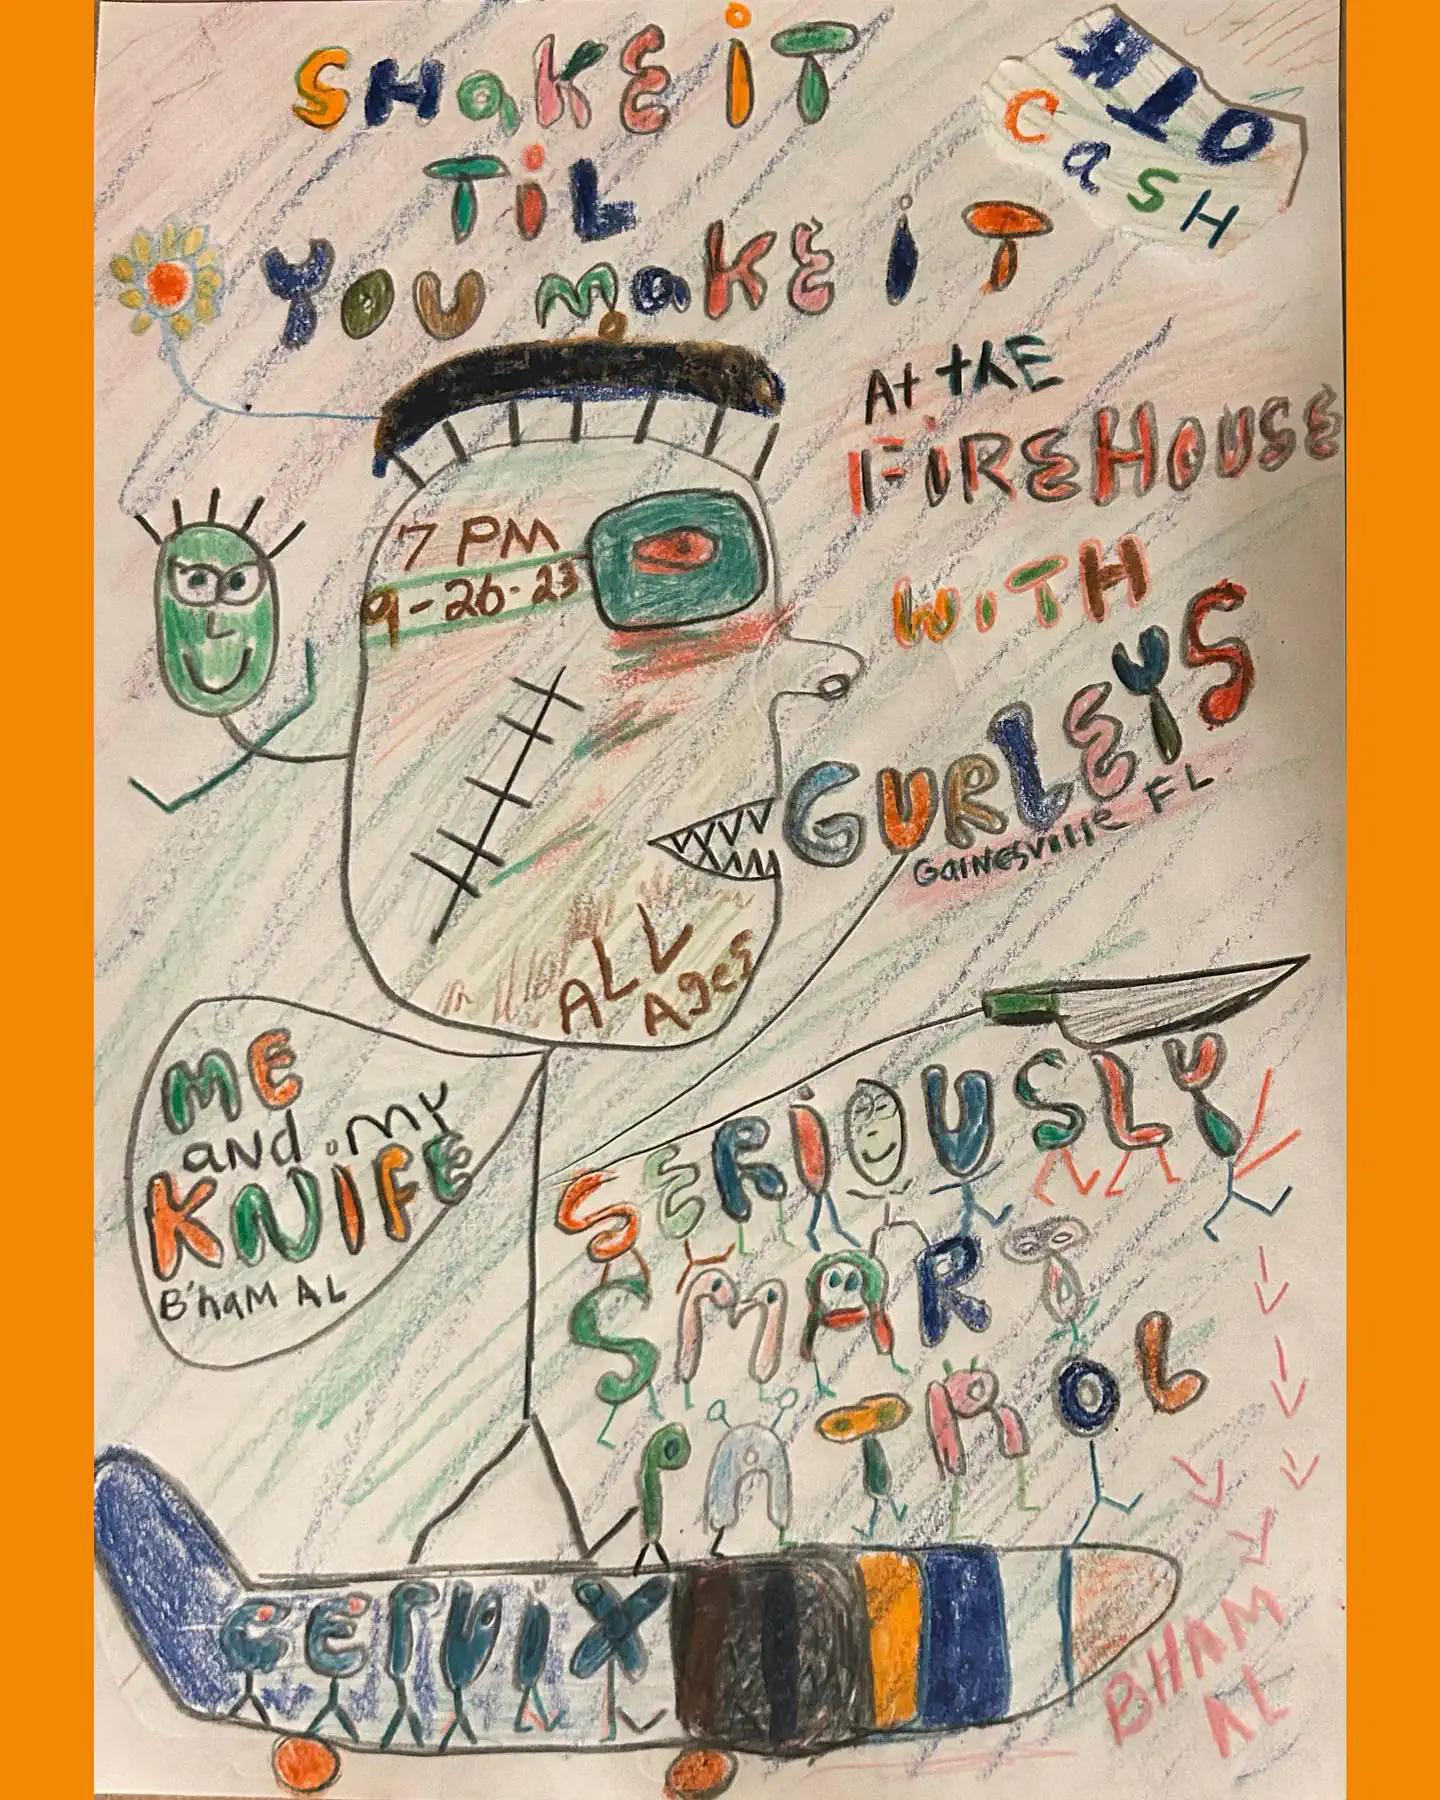 SHaKE iT
TiL
YOU maKE iT
#10
CaSH
At thE
FiREHOUSE
7 PM
9-26-23
WiTH
GURLEYS
GaINESVIllE FL
ALL
AgeS
ME
aND my
KNIFE
B'haM AL
SERiOUSLY
SMART
PATROL
CERViX
BHAM
AL